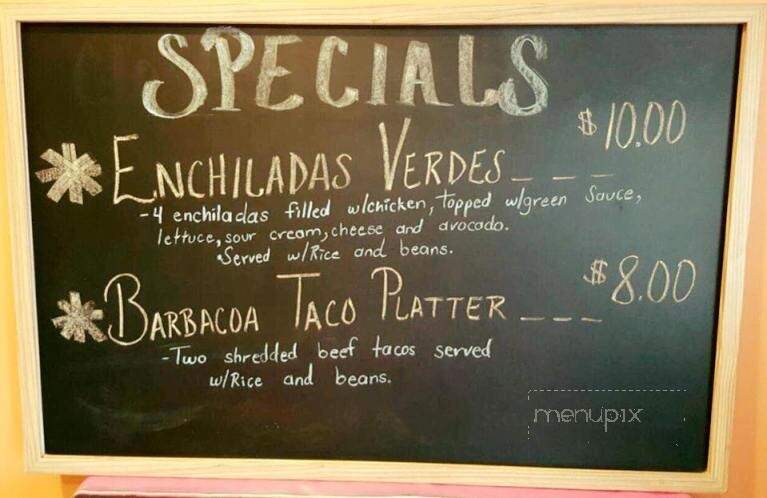 SPECIALS
* ENCHILADAS VERDES _ _ _ $10.00
-4 enchiladas filled w/chicken, topped w/green sauce,
lettuce, sour cream, cheese and avocado.
*Served w/Rice and beans.
* BARBACOA TACO PLATTER _ _ _ $8.00
-Two shredded beef tacos served
w/Rice and beans.
menupix